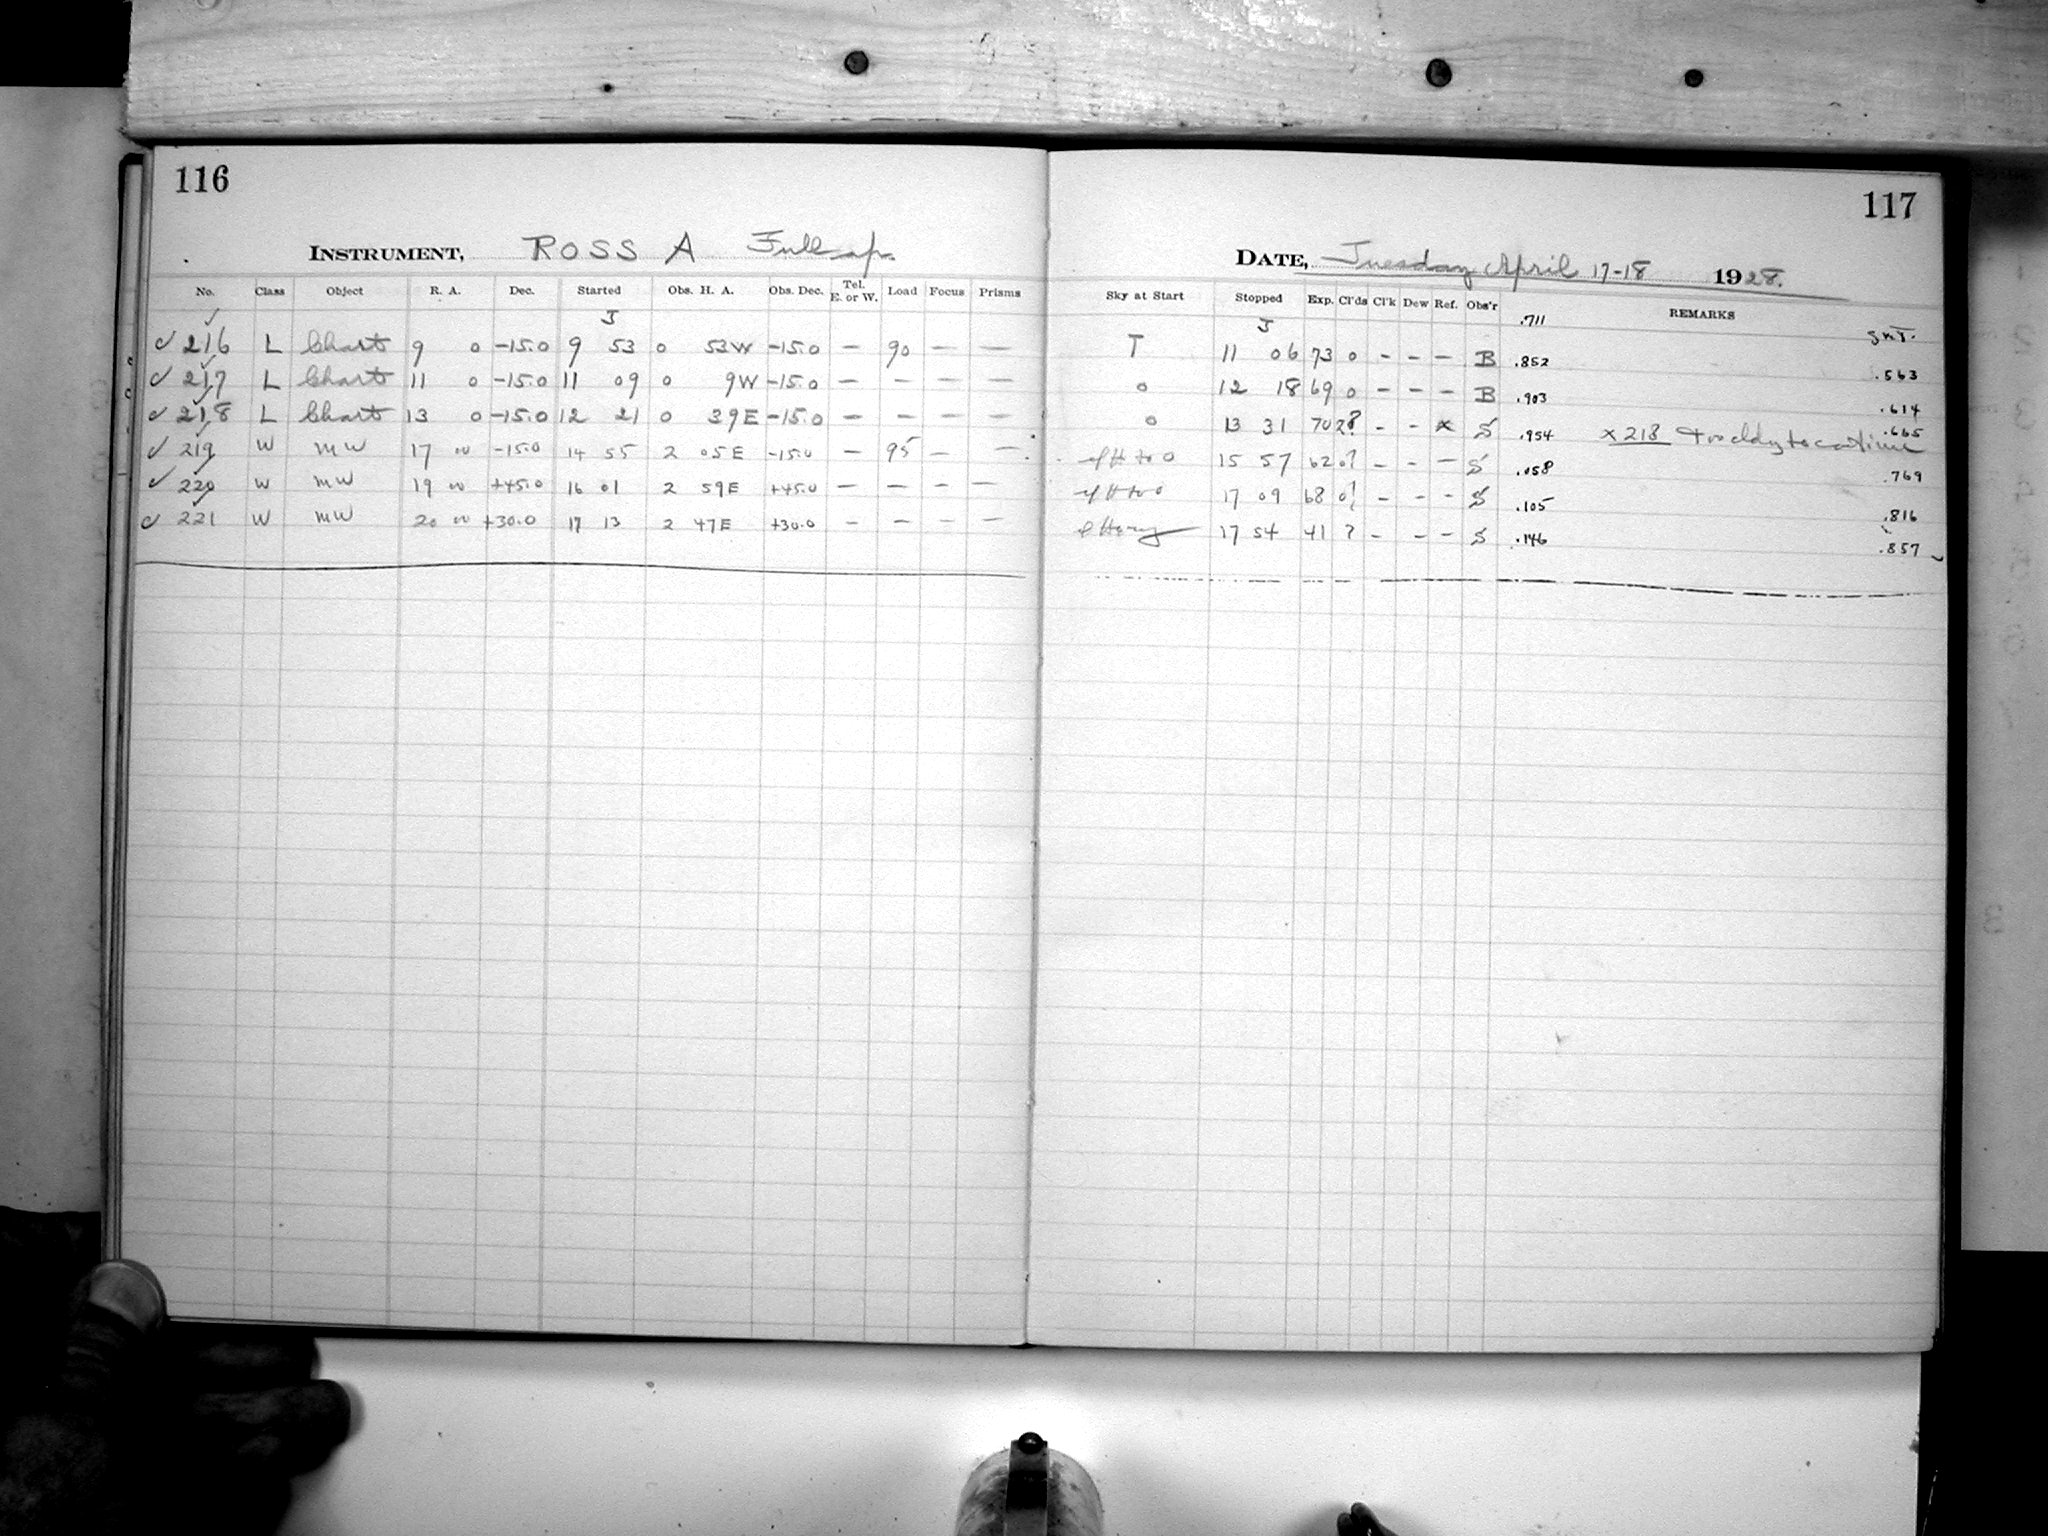 116
117
INSTRUMENT, ROSS A Full ap.
DATE, Tuesday April 17-18 1928.
No. Class Object R. A. Dec. Started Obs. H. A. Obs. Dec. Tel. E. or W. Load Focus Prisms
Sky at Start Stopped Exp. Cl'ds Cl'k Dew Ref. Obs'r REMARKS
J
J .711 G.M.T.
✓ 216 L Chart 9 0 -15.0 9 53 0 53W -15.0 — 90 — —
T 11 06 73 0 - - - B .852 .563
✓ 217 L Chart 11 0 -15.0 11 09 0 9W -15.0 — — — —
0 12 18 69 0 - - - B .903 .614
✓ 218 L Chart 13 0 -15.0 12 21 0 39E -15.0 — — — —
0 13 31 70 2? - - x S .954 x 218 too cldy to continue .665
✓ 219 W MW 17 00 -15.0 14 55 2 05E -15.0 — 95 — —
to 0 15 57 62 0? - - - S .058 .769
✓ 220 W MW 19 00 +45.0 16 01 2 59E +45.0 — — — —
17 09 68 0? - - - S .105 .816
✓ 221 W MW 20 00 +30.0 17 13 2 47E +30.0 — — — —
17 54 41 ? - - - S .146 .857